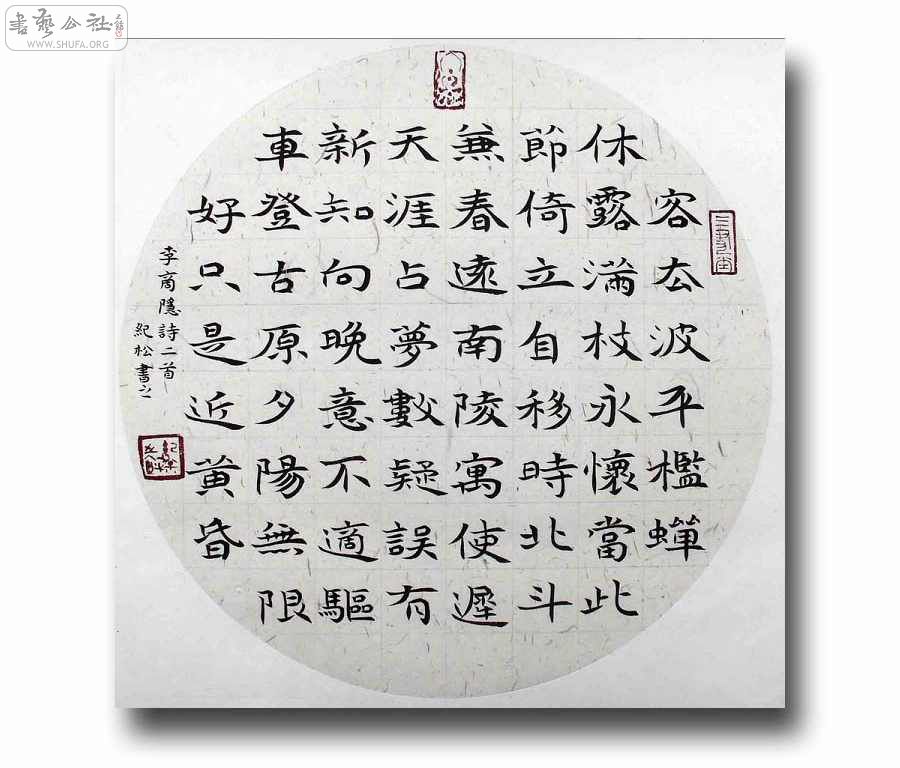 書藝公社
WWW.SHUFA.ORG
客厺波平檻蟬
休露滿枝永懷當此
節倚立自移時北斗
兼春遠南陵寓使遲
天涯占夢數疑誤有
新知向晚意不適驅
車登古原夕陽無限
好只是近黃昏
李商隱詩二首
紀松書之